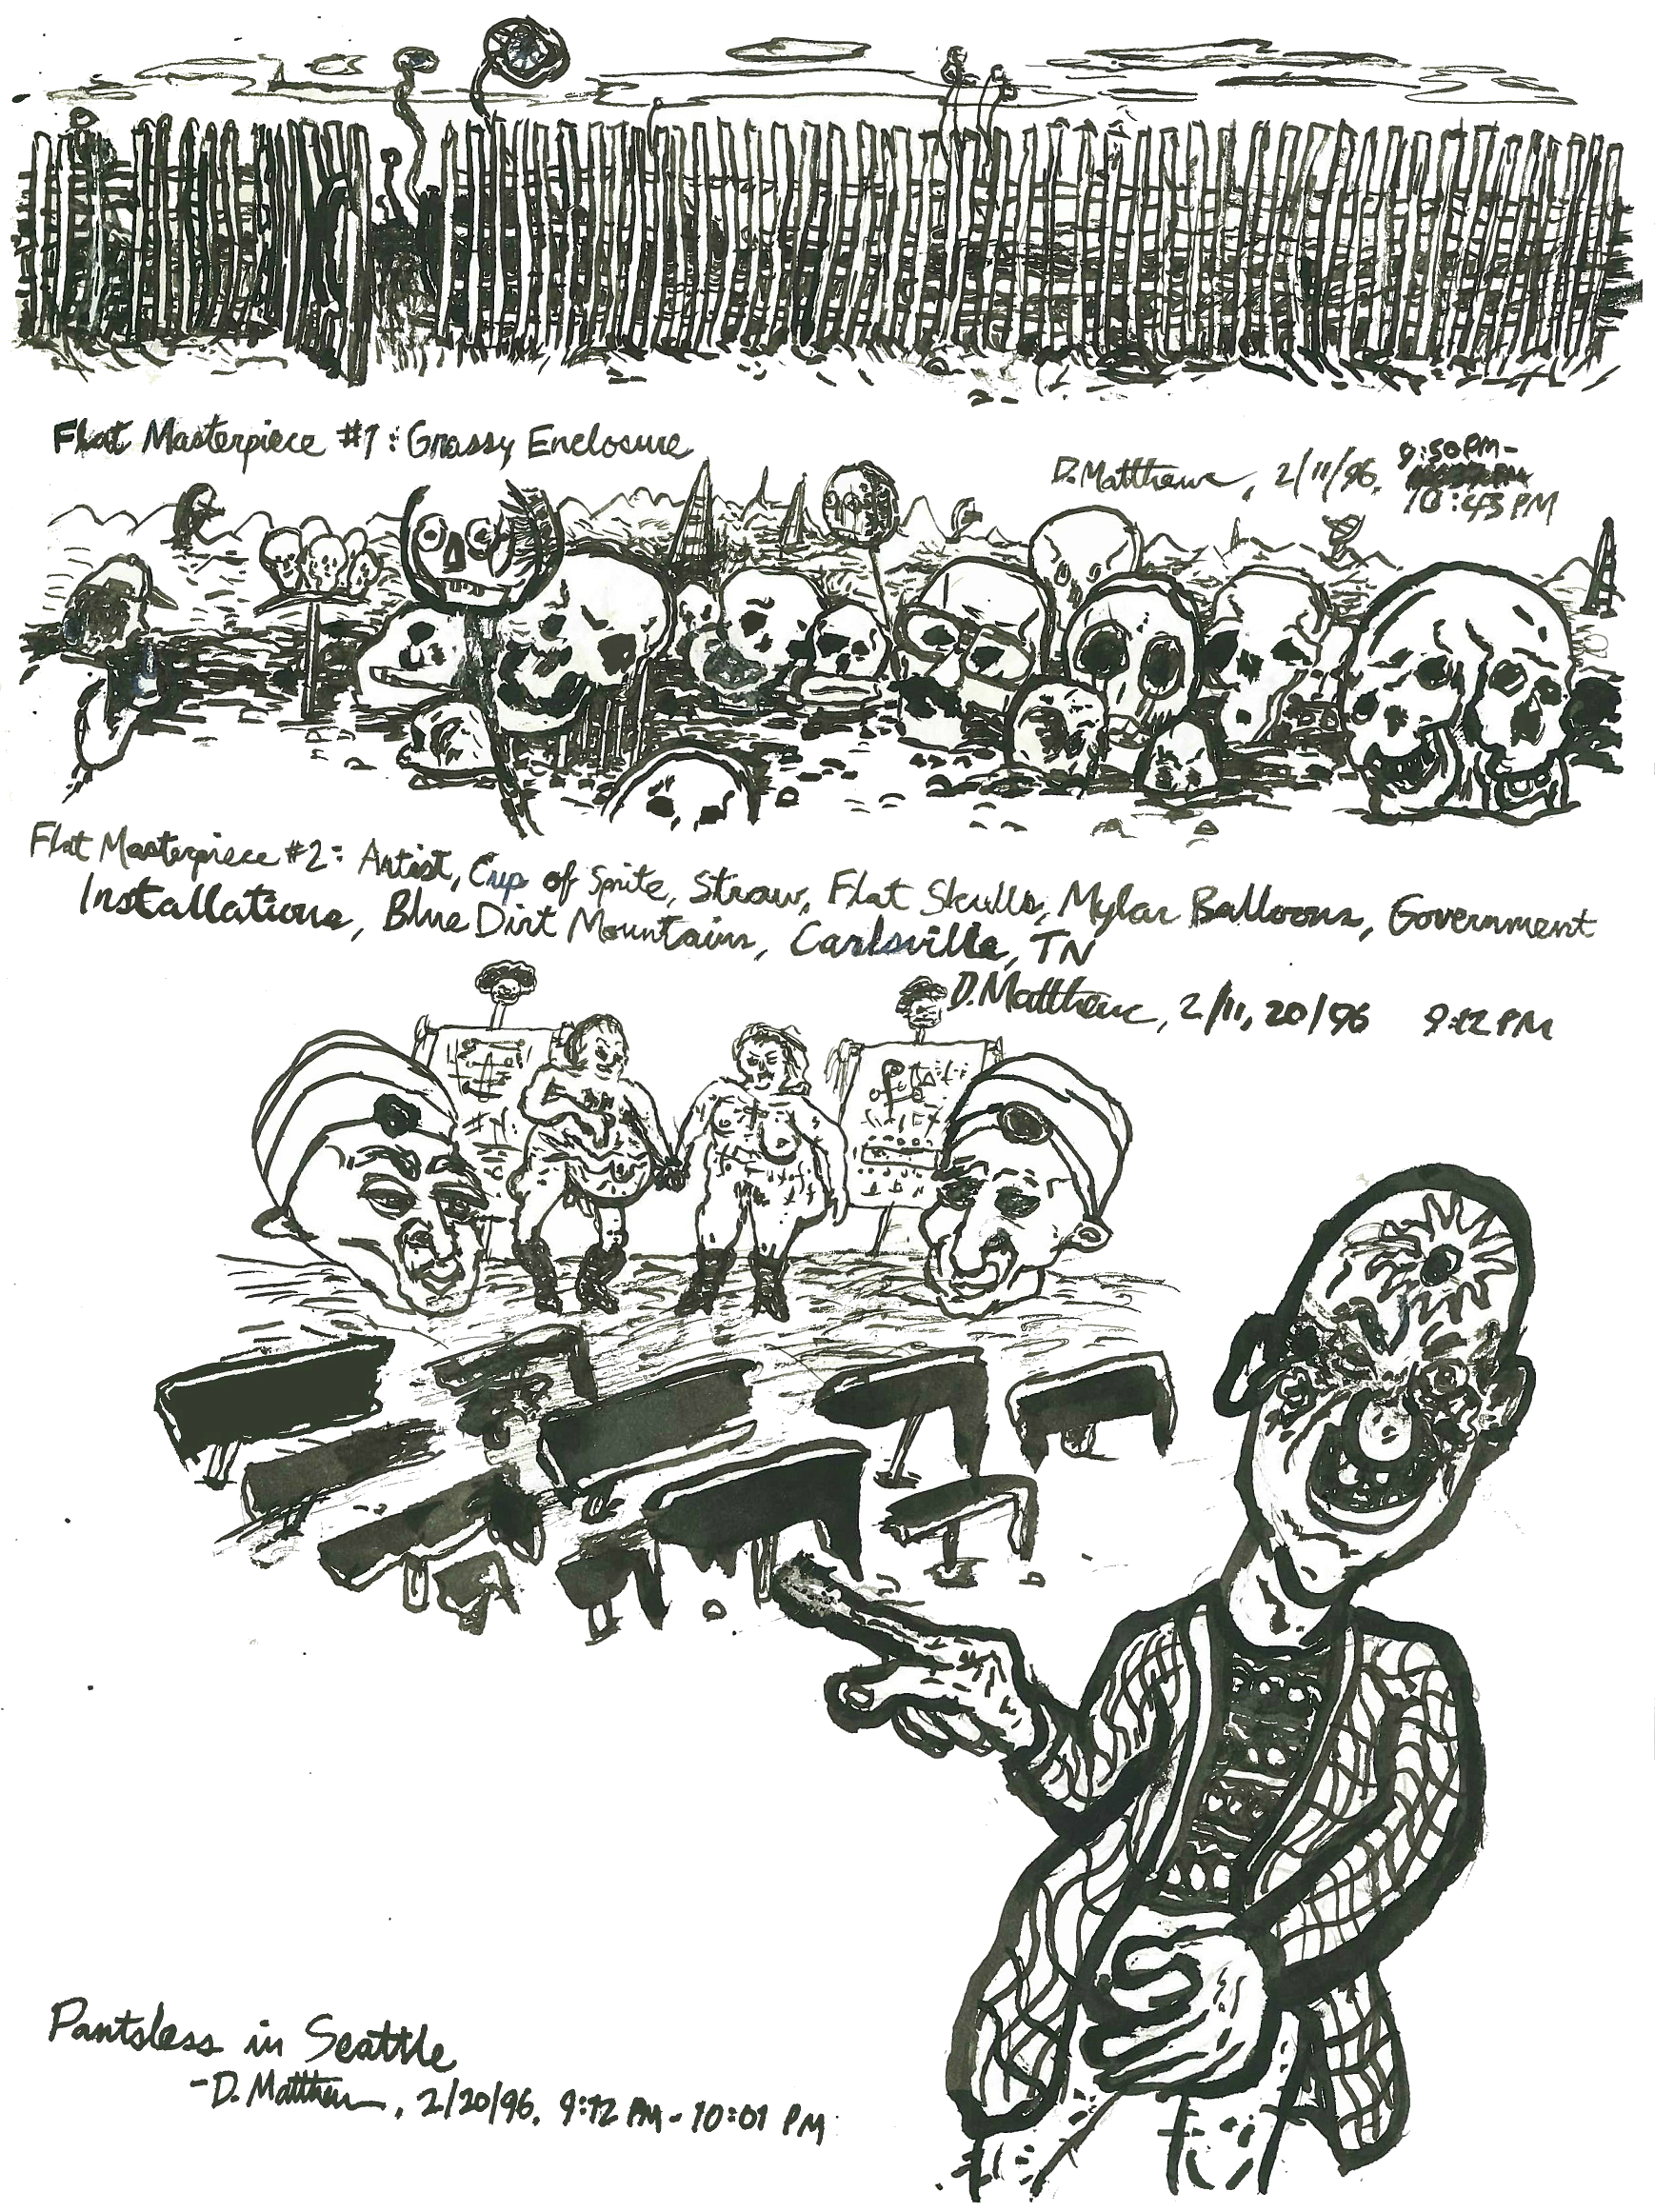 Flat Masterpiece #1: Grassy Enclosure
D. Matthews, 2/11/96, 9:50 PM-
10:43 PM
Flat Masterpiece #2: Artist, Cup of Sprite, Straw, Flat Skulls, Mylar Balloons, Government
Installations, Blue Dirt Mountains, Carlsville, TN
D. Matthews, 2/11, 20/96 9:12 PM
Pantsless in Seattle
-D. Matthews, 2/20/96, 9:12 PM-10:01 PM